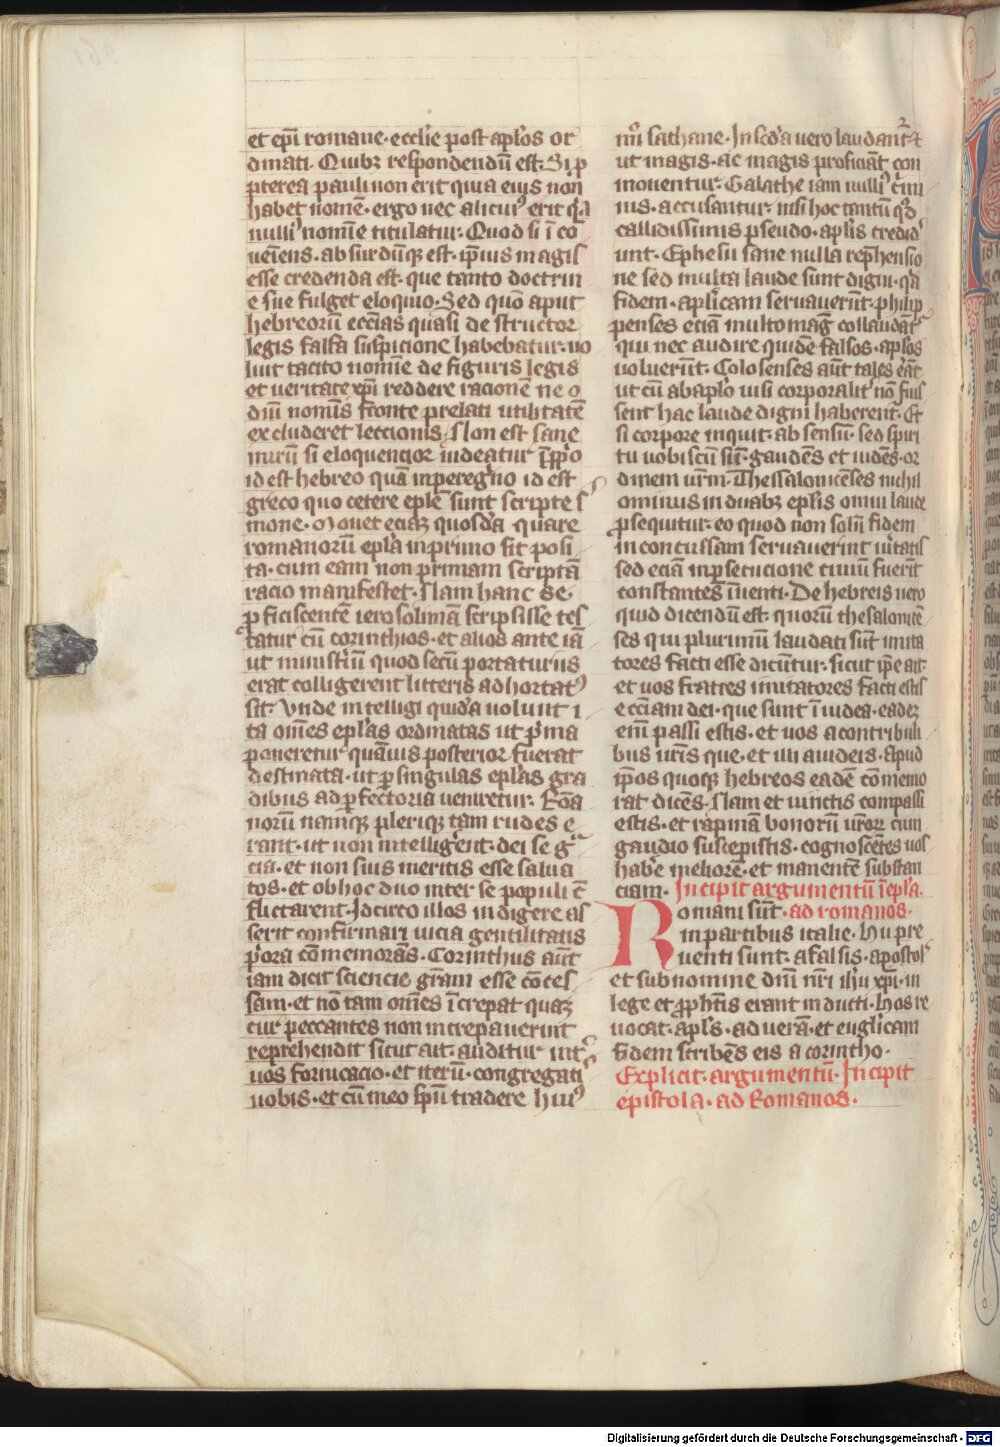 et ep̄i romane·eccl̄ie post apl̄os or
dinati· Quibꝫ respondendū est· Si ꝓ
pterea pauli non erit quia eius non
habet nomē·ergo nec alicui⁹ erit qͣa
nulli⁹ nomīe titulatur· Quod si ī co
ueīens·absurdūqꝫ est·ip̄ius magis
esse credenda est·que tanto doctrin
e sue fulget eloquio· Sed quō aput
hebreorū eccl̄as quasi de structor
legis falsa suspicione habebatur·uo
luit tacito nomīe de figuris legis
et ueritate xp̄i reddere racionē ne o
diū nomīs fronte prelati utilitatē
excluderet leccionis· Non est sane
mirū si eloquencior uideatur ī ꝓpͥo
id est hebreo quā in peregͥno id est
greco quo cetere ep̄le sunt scripte s̄
mone· Mouet eciaꝫ quosdā quare
romanorū epl̄a in primo sit posi
ta·cum eam non primam scriptā
racio manifestet· Nam hanc se·
ꝓficiscentē ierosolimā scripsisse tes
tatur cū corinthios·et alios ante iā
ut ministͥiū quod secū portaturus
erat colligerent litteris adhortat⁹
sit· Vnde intelligi quidā uolunt i
ta om̄es epl̄as ordinatas ut pͥma
poneretur quāuis posterior fuerat
destinata·ut ꝑ singulas epl̄as gra
dibus ad ꝑfectoria ueniretur· Rōa
norū namqꝫ pleriqꝫ tam rudes e
rant·ut non intelligͤent·dei se gͣ
cia·et non suis meritis esse salua
tos·et ob hoc duo inter se populi ↄ̄
flictarent· Idcirco illos indigere as
serit confirmari uicia gentilitatis
pͥora cōmemorās· Corinthus aūt
iam dicit sciencie grām esse cōces
sam·et nō tam om̄es īcrepat quaꝫ
cur peccantes non increpauerint
reprehendit sicut ait· auditur intͤ
uos fornicacio·et iterū·congregati
uobis·et cū meo spū tradere hui⁹
mōi sathane· In scd̄a uero laudantͬ
ut magis·ac magis proficiāt con
mouentur· Galathe iam nulli⁹ cͥmi
nis·accusantur·nisi hoc tantū qͦd
callidissimis pseudo·apl̄is credid
unt· Ephesii sane nulla rep̄hensio
ne sed multa laude sunt digni·qͣa
fidem·apl̄icam seruauerūt·philip
penses eciā multo maḡ collaudātͬ
qui nec audire quidē falsos·apl̄os
uoluerūt· Colosenses aūt tales erāt
ut cū ab apl̄o uisi corporalitͤ nō fuis
sent hac laude digni haberentͬ· Et
si corpore inquit·absensū·sed spiri
tu uobiscū sū·gaudēs et uidēs·or
dinem ur̄m· Thessalonicēses nichil
ominus in duabꝫ epl̄is omni laude
ꝓsequitur·eo quod non solū fidem
inconcussam seruauerint uͥtatis
sed eciā in ꝑsecucione ciuiū fuerīt
constantes īuenti· De hebreis uero
quid dicendū est·quorū thesalonicē
ses qui plurimū laudati sūt imita
tores facti esse dicūtur·sicut ip̄e ait·
et uos fratres imitatores facti estis
ecc̄iam dei·que sunt ī iudea·eadeꝫ
enī passi estis·et uos a contribuli
bus ur̄is que·et illi a iudeis·Apud
ip̄os quoqꝫ hebreos eadē cōmemo
rat dicēs· Nam et uinctis compassi
estis·et rapinā bonorū ur̄orꝝ cum
gaudio suscepistis·cognoscētes uos
habͤe meliorē·et manentē substan
ciam· Incipit argumentū ī epl̄a·
Romani sūt·ad romanos·
in partibus italie· Hii pre
uenti sunt·a falsis·apostol̄
et sub nomine dn̄i nr̄i ih̄u xp̄i·in
lege et ꝓph̄tis erant inducti· Hos re
uocat·apl̄s·ad uerā·et eūglicam
fidem scribēs eis a corintho·
Explicit·argumentū· Incipit
epistola·ad Romanos·
Digitalisierung gefördert durch die Deutsche Forschungsgemeinschaft - DFG